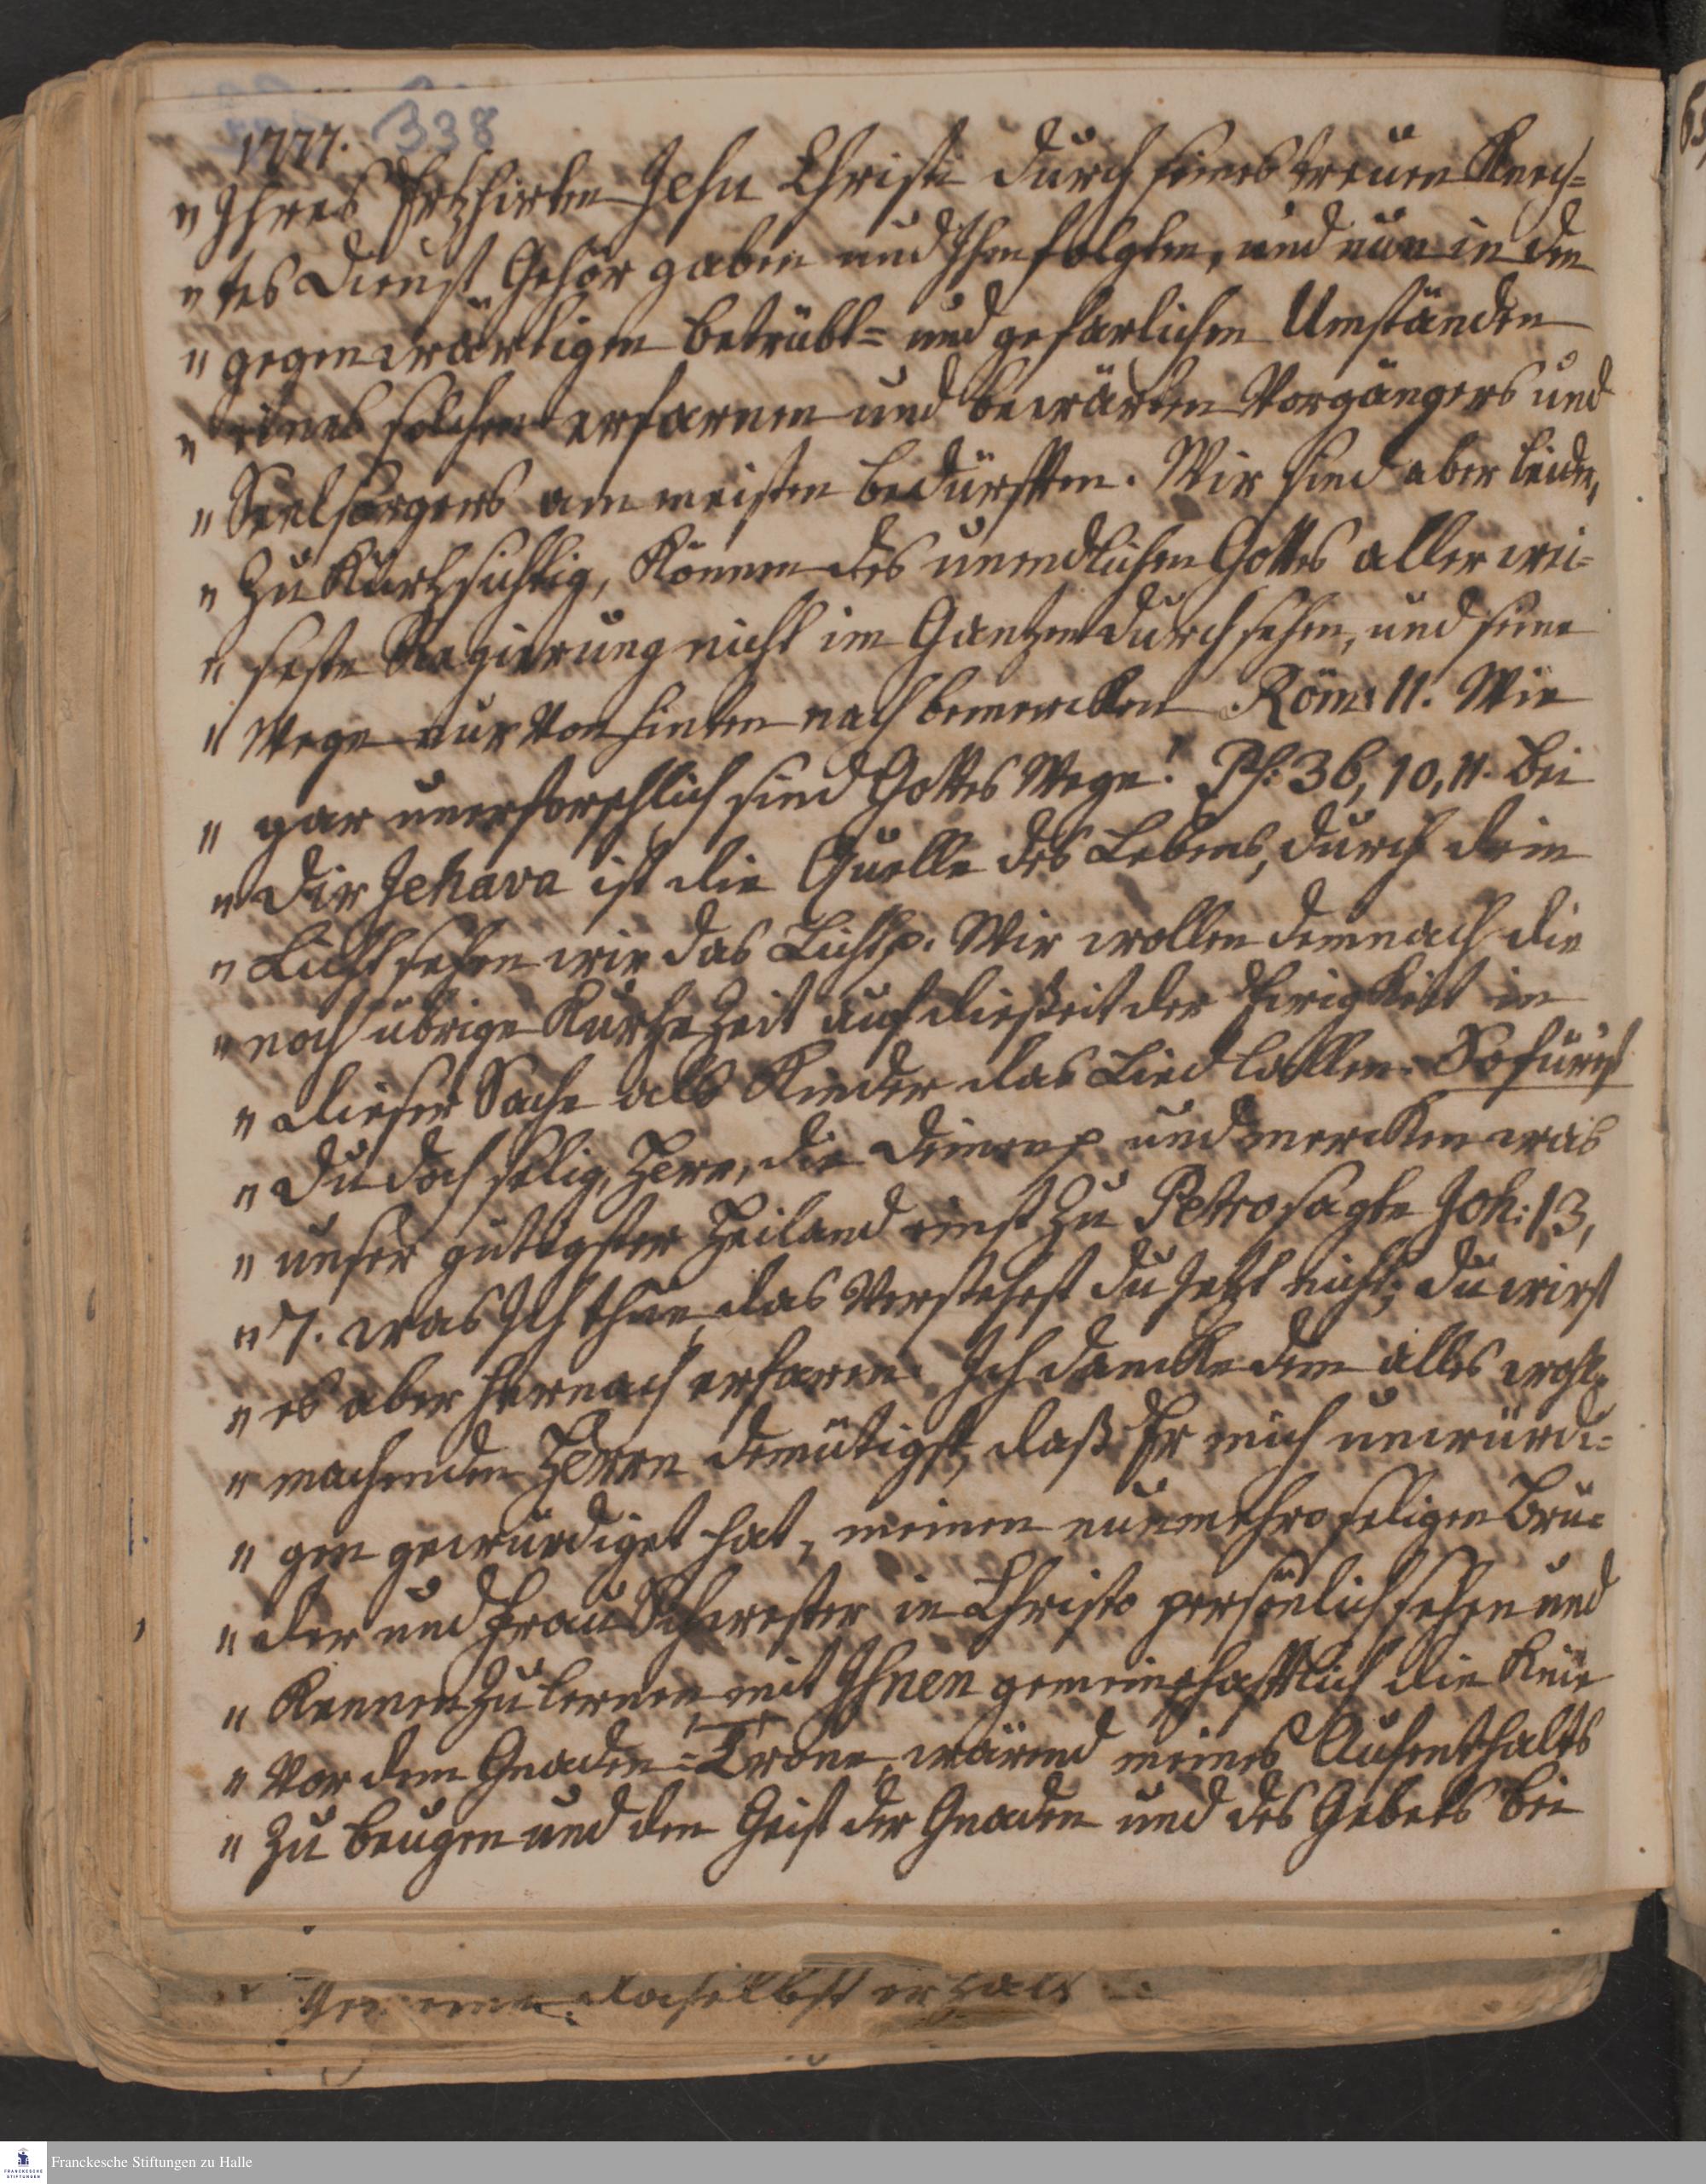 1777. 338
" Ihres Ertzhirten Jesu Christi durch seines treuen Knech=
" tes Dienst Gehör gaben und Ihm folgten, und nun in den
" gegenwärtigen betrübt= und gefärlichen Umständen
" eines solchen erfarnen und bewärten Vorgängers und
" Seelsorgers am meisten bedürfften. Wir sind aber leider,
" zu kurtzsichtig, können des unendlichen Gottes aller wei=
" seste Regierung nicht im Gantzen durchsehen, und seine
" Wege nur von hinten nach bemercken Röm: 11. Wie
" gar unerforschlich sind Gottes Wege! Ps: 36, 10, 11. Bei
" Dir Jehova ist die Quelle des Lebens, durch dein
" Licht sehen wir das Licht p. Wir wollen demnach die
" noch übrige kurtze Zeit auf dießeit der Ewigkeit in
" dieser Sache als Kinder das Lied lallen: So fürst
" Du doch selig, Herr, die Deinen p und mercken was
" unser gütigster Heiland einst zu Petro sagte Joh: 13,
" 7. was Ich thue, das verstehest du jetzt nicht; du wirst
" es aber hernach erfaren. Ich dancke dem alles wohl=
" machenden Herrn demütigst, daß Er mich unwürdi=
" gen gewürdiget hat, meinen nunmehro seligen Bru=
" der und Frau Schwester in Christo persönlich sehen und
" kennen zu lernen, mit Ihnen gemeinschafftlich die Knie
" vor dem Gnaden=Trone, wärend meines Aufenthalts
" zu beugen und den Geist der Gnaden und des Gebets bei
daselbst erhalt
Franckesche Stiftungen zu Halle
FRANCKESCHE
STIFTUNGEN